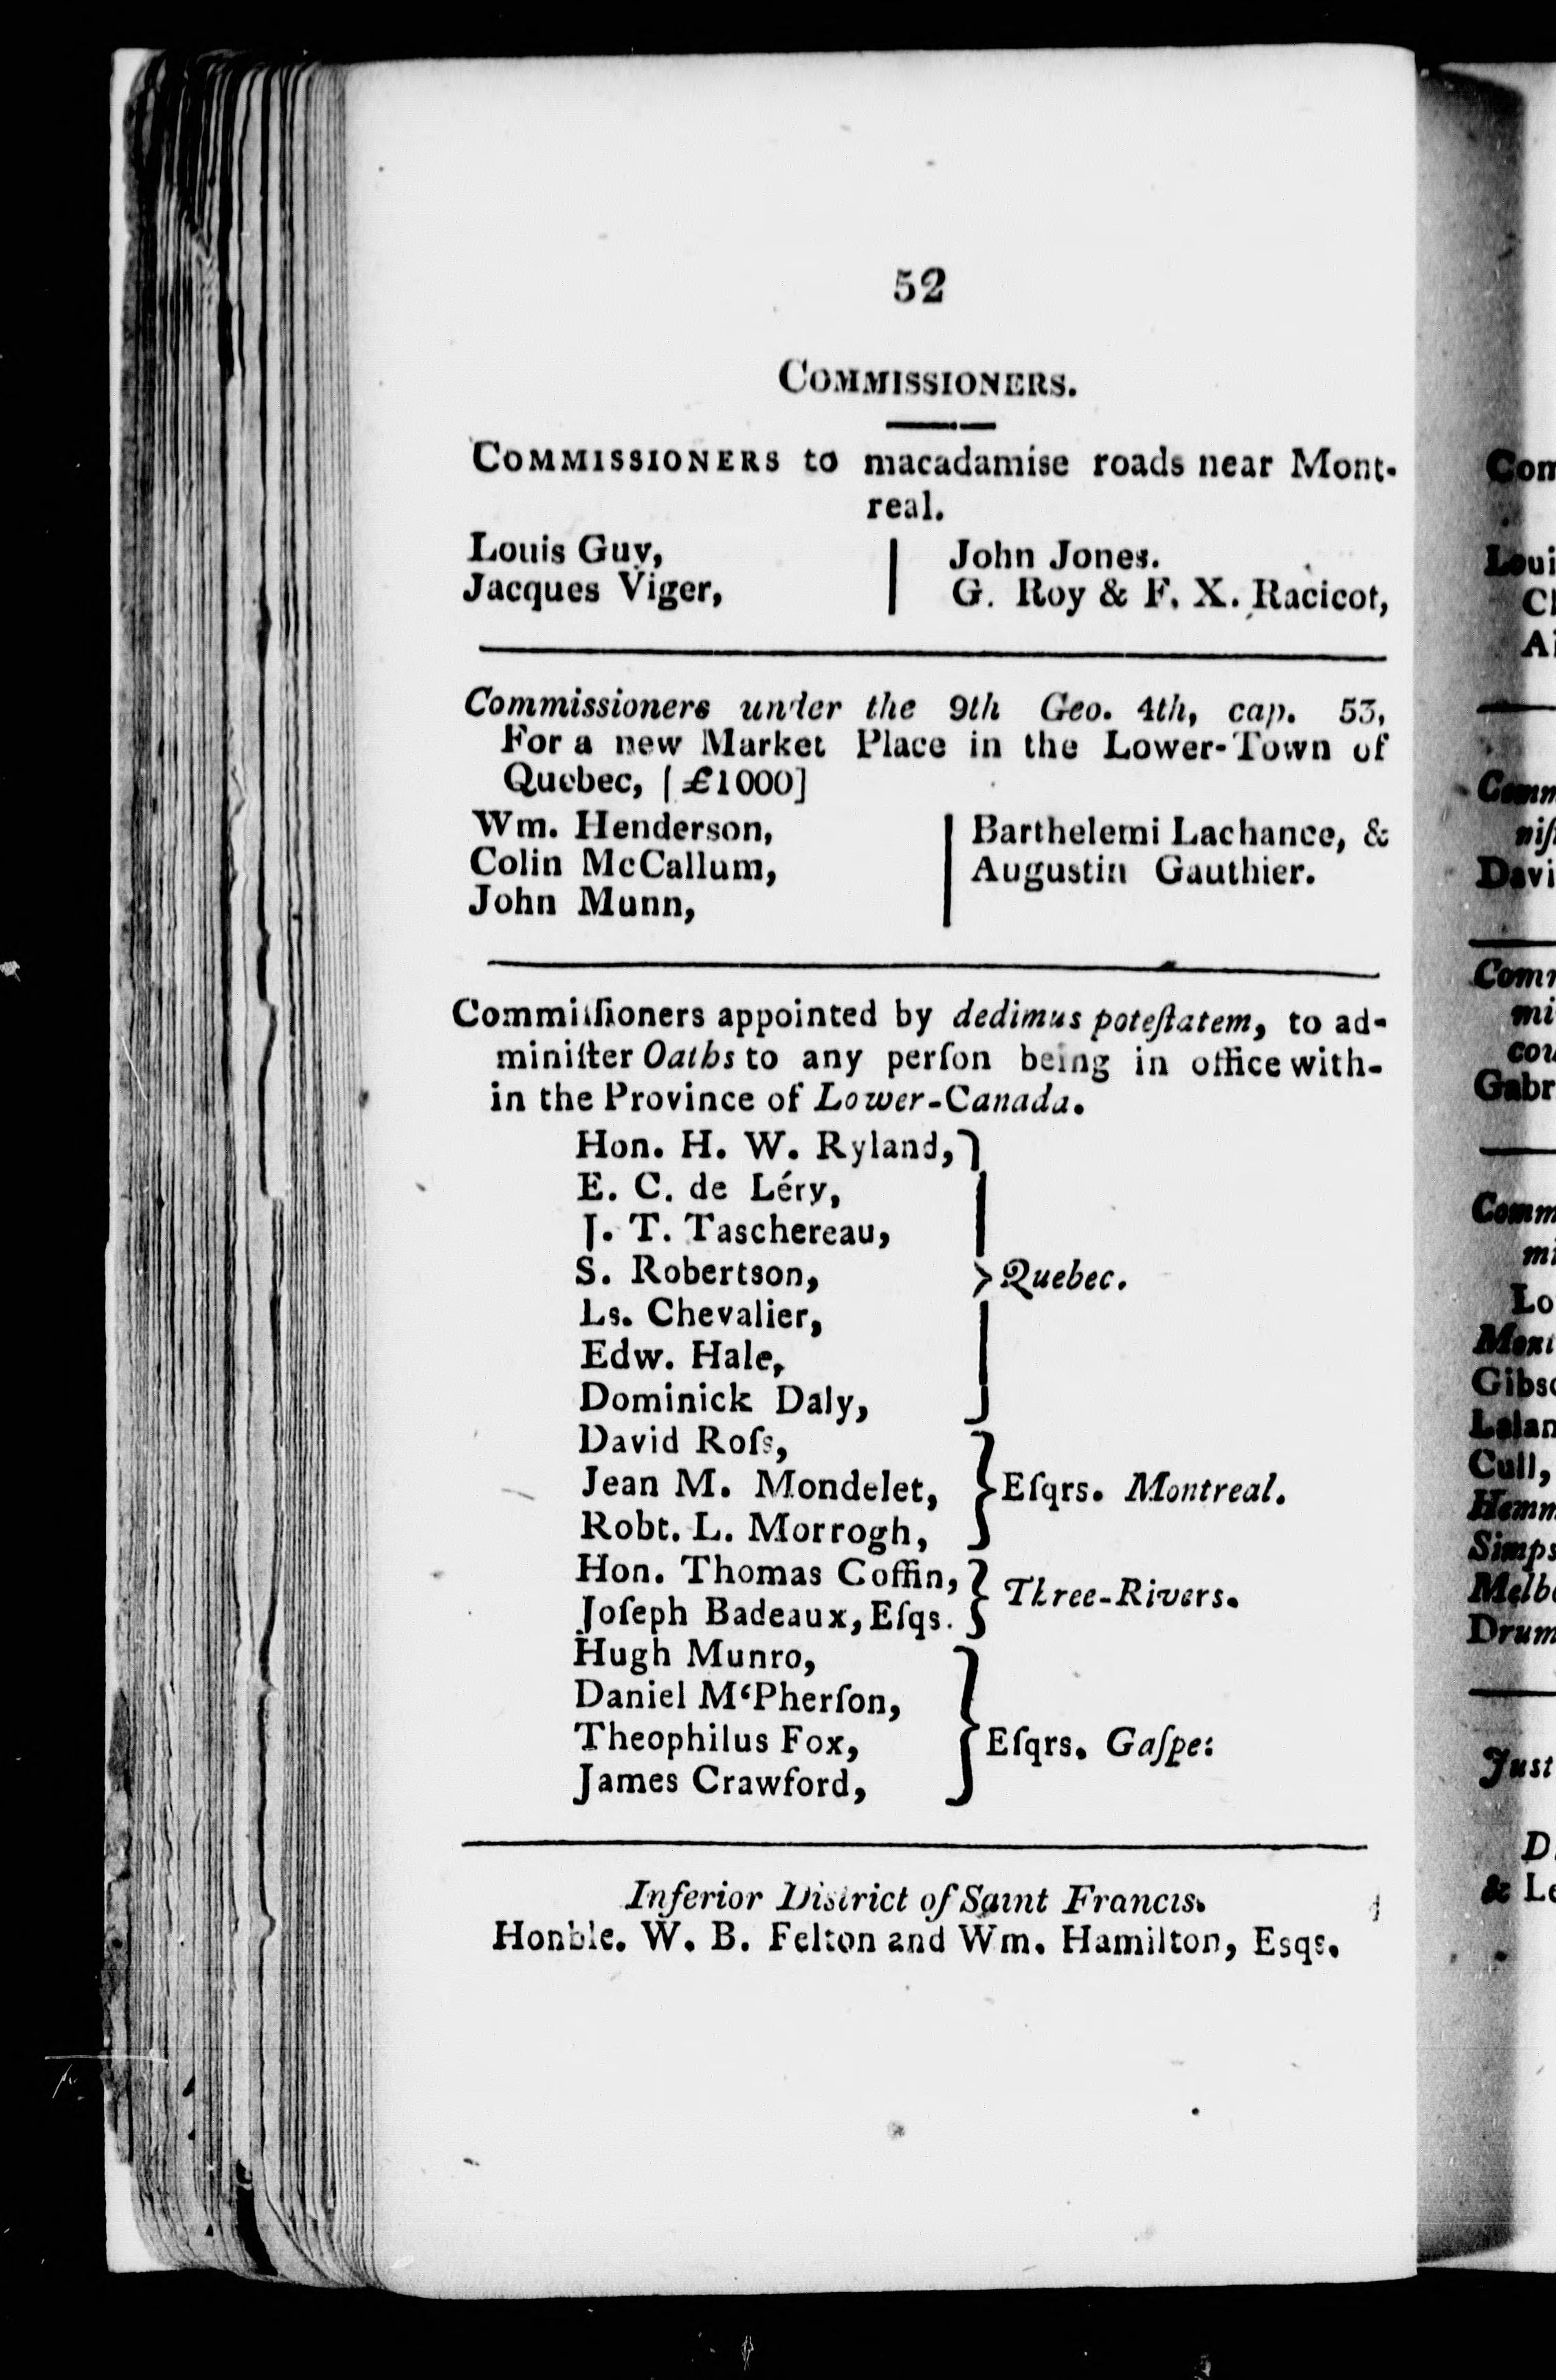 52
COMMISSIONERS.
COMMISSIONERS to macadamise roads near Mont-
real.
Louis Guy,
Jacques Viger,
John Jones.
G. Roy & F. X. Racicot,
Commissioners under the 9th Geo. 4th, cap. 53,
For a new Market Place in the Lower-Town of
Quebec, [£1000]
Wm. Henderson,
Colin McCallum,
John Munn,
Barthelemi Lachance, &
Augustin Gauthier.
Commiſſioners appointed by dedimus poteſtatem, to ad-
miniſter Oaths to any perſon being in office with-
in the Province of Lower-Canada.
Hon. H. W. Ryland,
E. C. de Léry,
J. T. Taschereau,
S. Robertson,
Ls. Chevalier,
Edw. Hale,
Dominick Daly,
Quebec.
David Roſs,
Jean M. Mondelet,
Robt. L. Morrogh,
Eſqrs. Montreal.
Hon. Thomas Coffin,
Joſeph Badeaux, Eſqs.
Three-Rivers.
Hugh Munro,
Daniel M‘Pherſon,
Theophilus Fox,
James Crawford,
Eſqrs. Gaſpe:
Inferior District of Saint Francis.
Honble. W. B. Felton and Wm. Hamilton, Esqs.